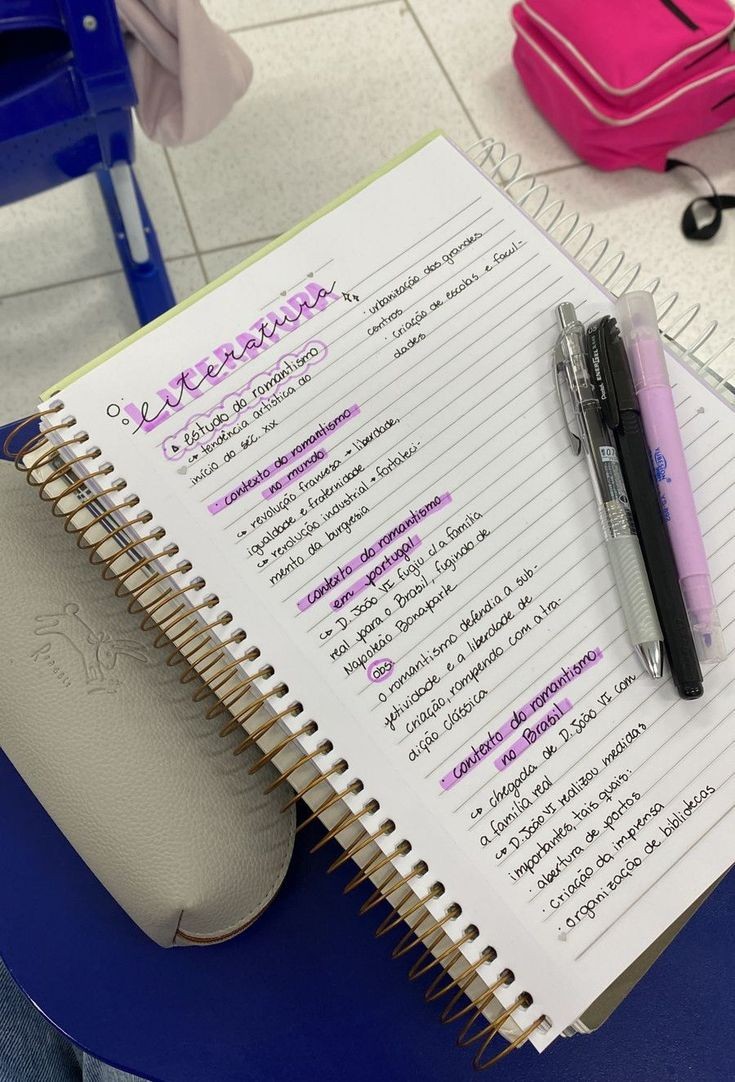 LITERATURA
literatura
estudo do romantismo
↪ tendência artística do
início do séc. xix
· contexto do romantismo
no mundo
↪ revolução francesa → liberdade,
igualdade e fraternidade
↪ revolução industrial → fortaleci-
mento da burgresia
· contexto do romantismo
em portugal
↪ D. João VI fugiu c/a família
real para o Brasil, fugindo de
Napoleão Bonaparte
obs
o romantismo defendia a sub-
jetividade e a liberdade de
criação, rompendo com a tra-
dição clássica
· contexto do romantismo
no Brasil
↪ chegada de D. João VI com
a família real
↪ D. João VI realizou medidas
importantes, tais quais:
· abertura de portos
· criação da imprensa
· organização de bibliotecas
· urbanização dos grandes
centros
· criação de escolas e facul-
dades
Pentel ENERGEL